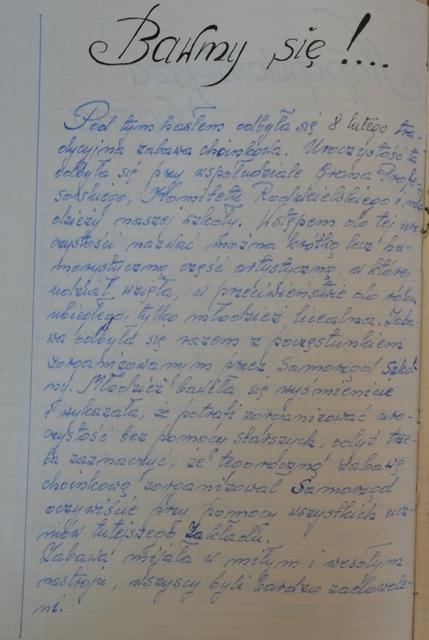 Bawmy się!....
Pod tym hasłem odbyła się 8 lutego tra-
dycyjna zabawa choinkowa. Uroczystość ta
odbyła się przy współudziale Grona Profe-
sorskiego, Komitetu Rodzicielskiego i mło-
dzieży naszej szkoły. Wstępem do tej uro-
czystości nazwać można krótką lecz hu-
morystyczną część artystyczną, w której
udział wzięła, w przeciwieństwie do roku
ubiegłego, tylko młodzież licealna. Zaba-
wa odbyła się razem z poczęstunkiem
zorganizowanym przez Samorząd Szkol-
ny. Młodzież bawiła się wyśmienicie
i wykazała, że potrafi zorganizować uro-
czystość bez pomocy starszych, gdyż trze-
ba zaznaczyć, że tegoroczną zabawę
choinkową zorganizował Samorząd
oczywiście przy pomocy wszystkich ucz-
niów tutejszego Zakładu.
Zabawa mijała w miłym i wesołym
nastroju, wszyscy byli bardzo zadowole-
ni.